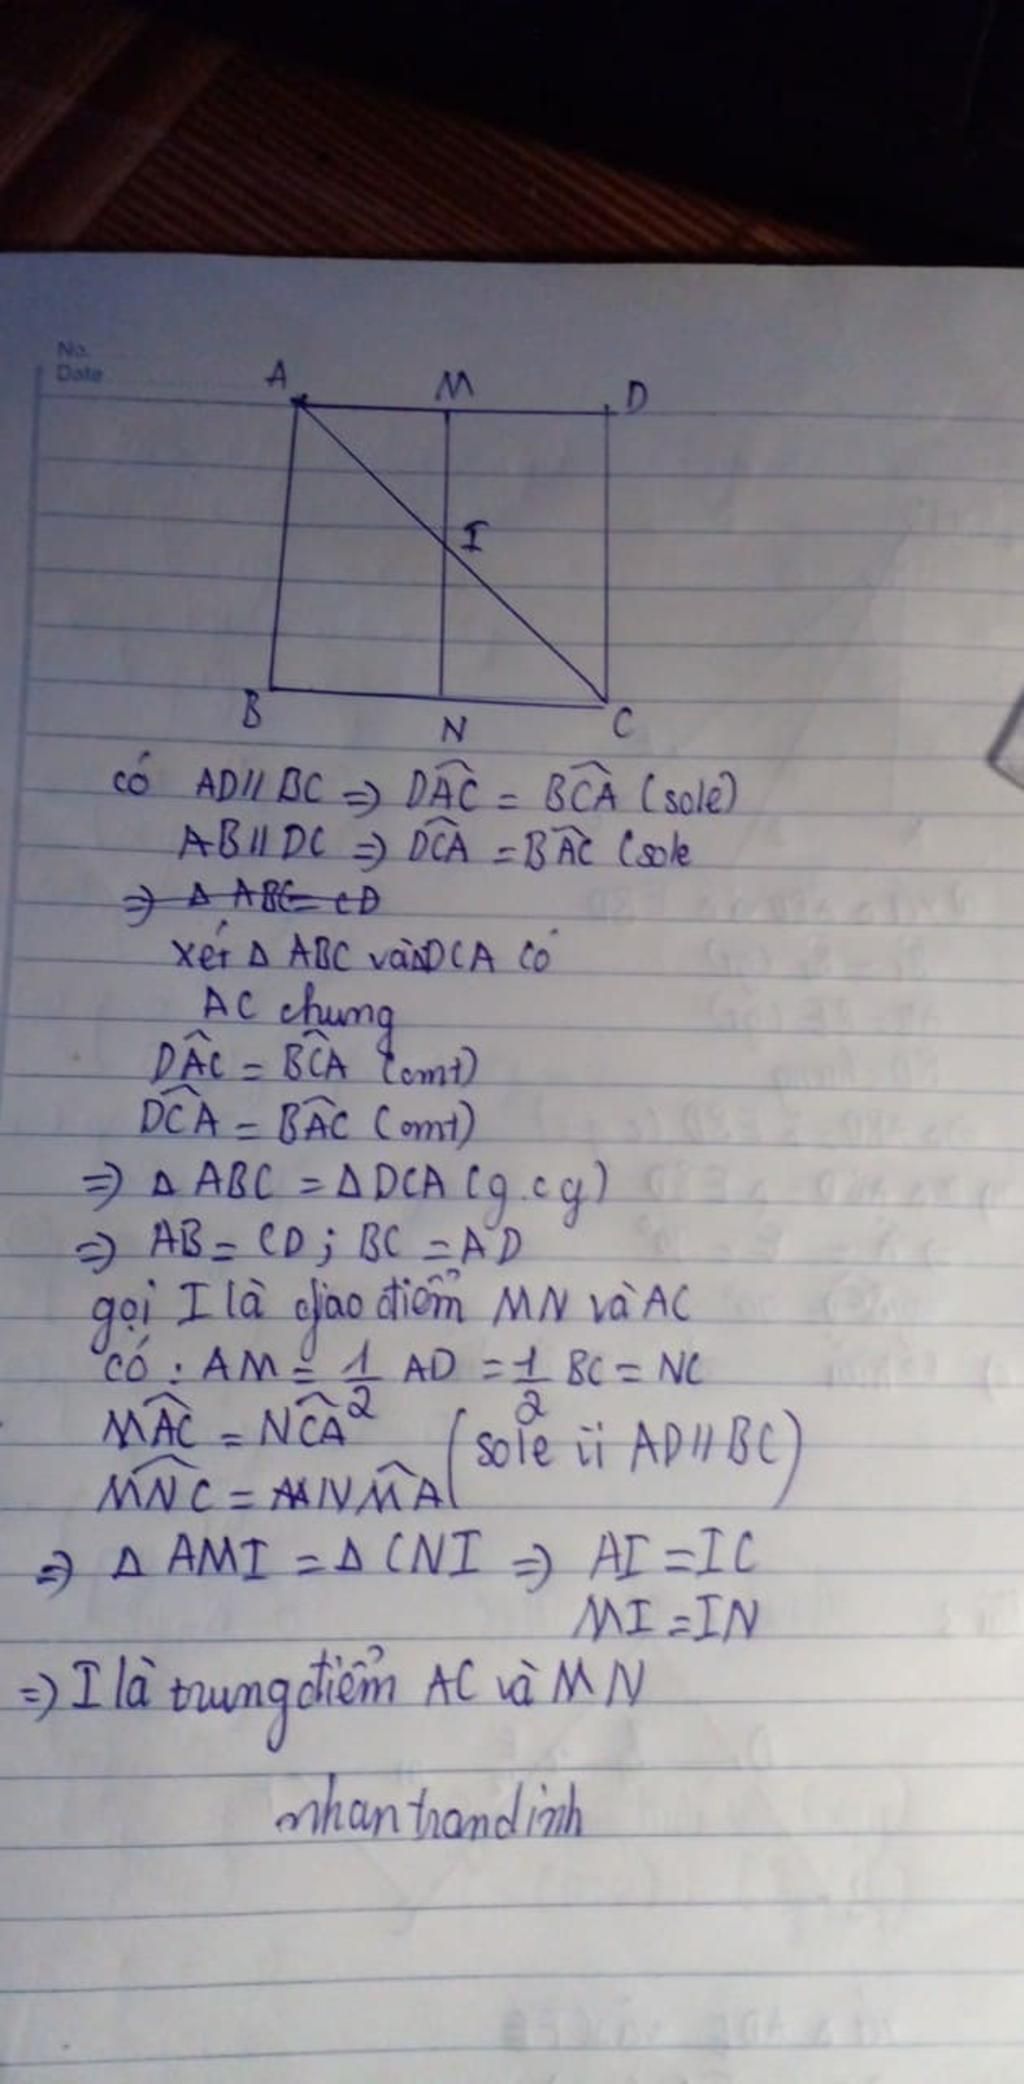 No.
Date
A M D
I
B N C
có AD // BC => DÂC = BĈA (sole)
AB // DC => DĈA = BÂC (sole
=> Δ ABC = CD
xét Δ ABC và ΔDCA có
AC chung
DÂC = BĈA (cmt)
DĈA = BÂC (cmt)
=> Δ ABC = Δ DCA (g.c.g)
=> AB = CD ; BC = AD
gọi I là giao điểm MN và AC
có : AM = 1/2 AD = 1/2 BC = NC
MÂC = NĈA
(sole ii AD // BC)
MN̂C = NM̂A
=> Δ AMI = Δ CNI => AI = IC
MI = IN
=> I là trung điểm AC và MN
nhantrandinh